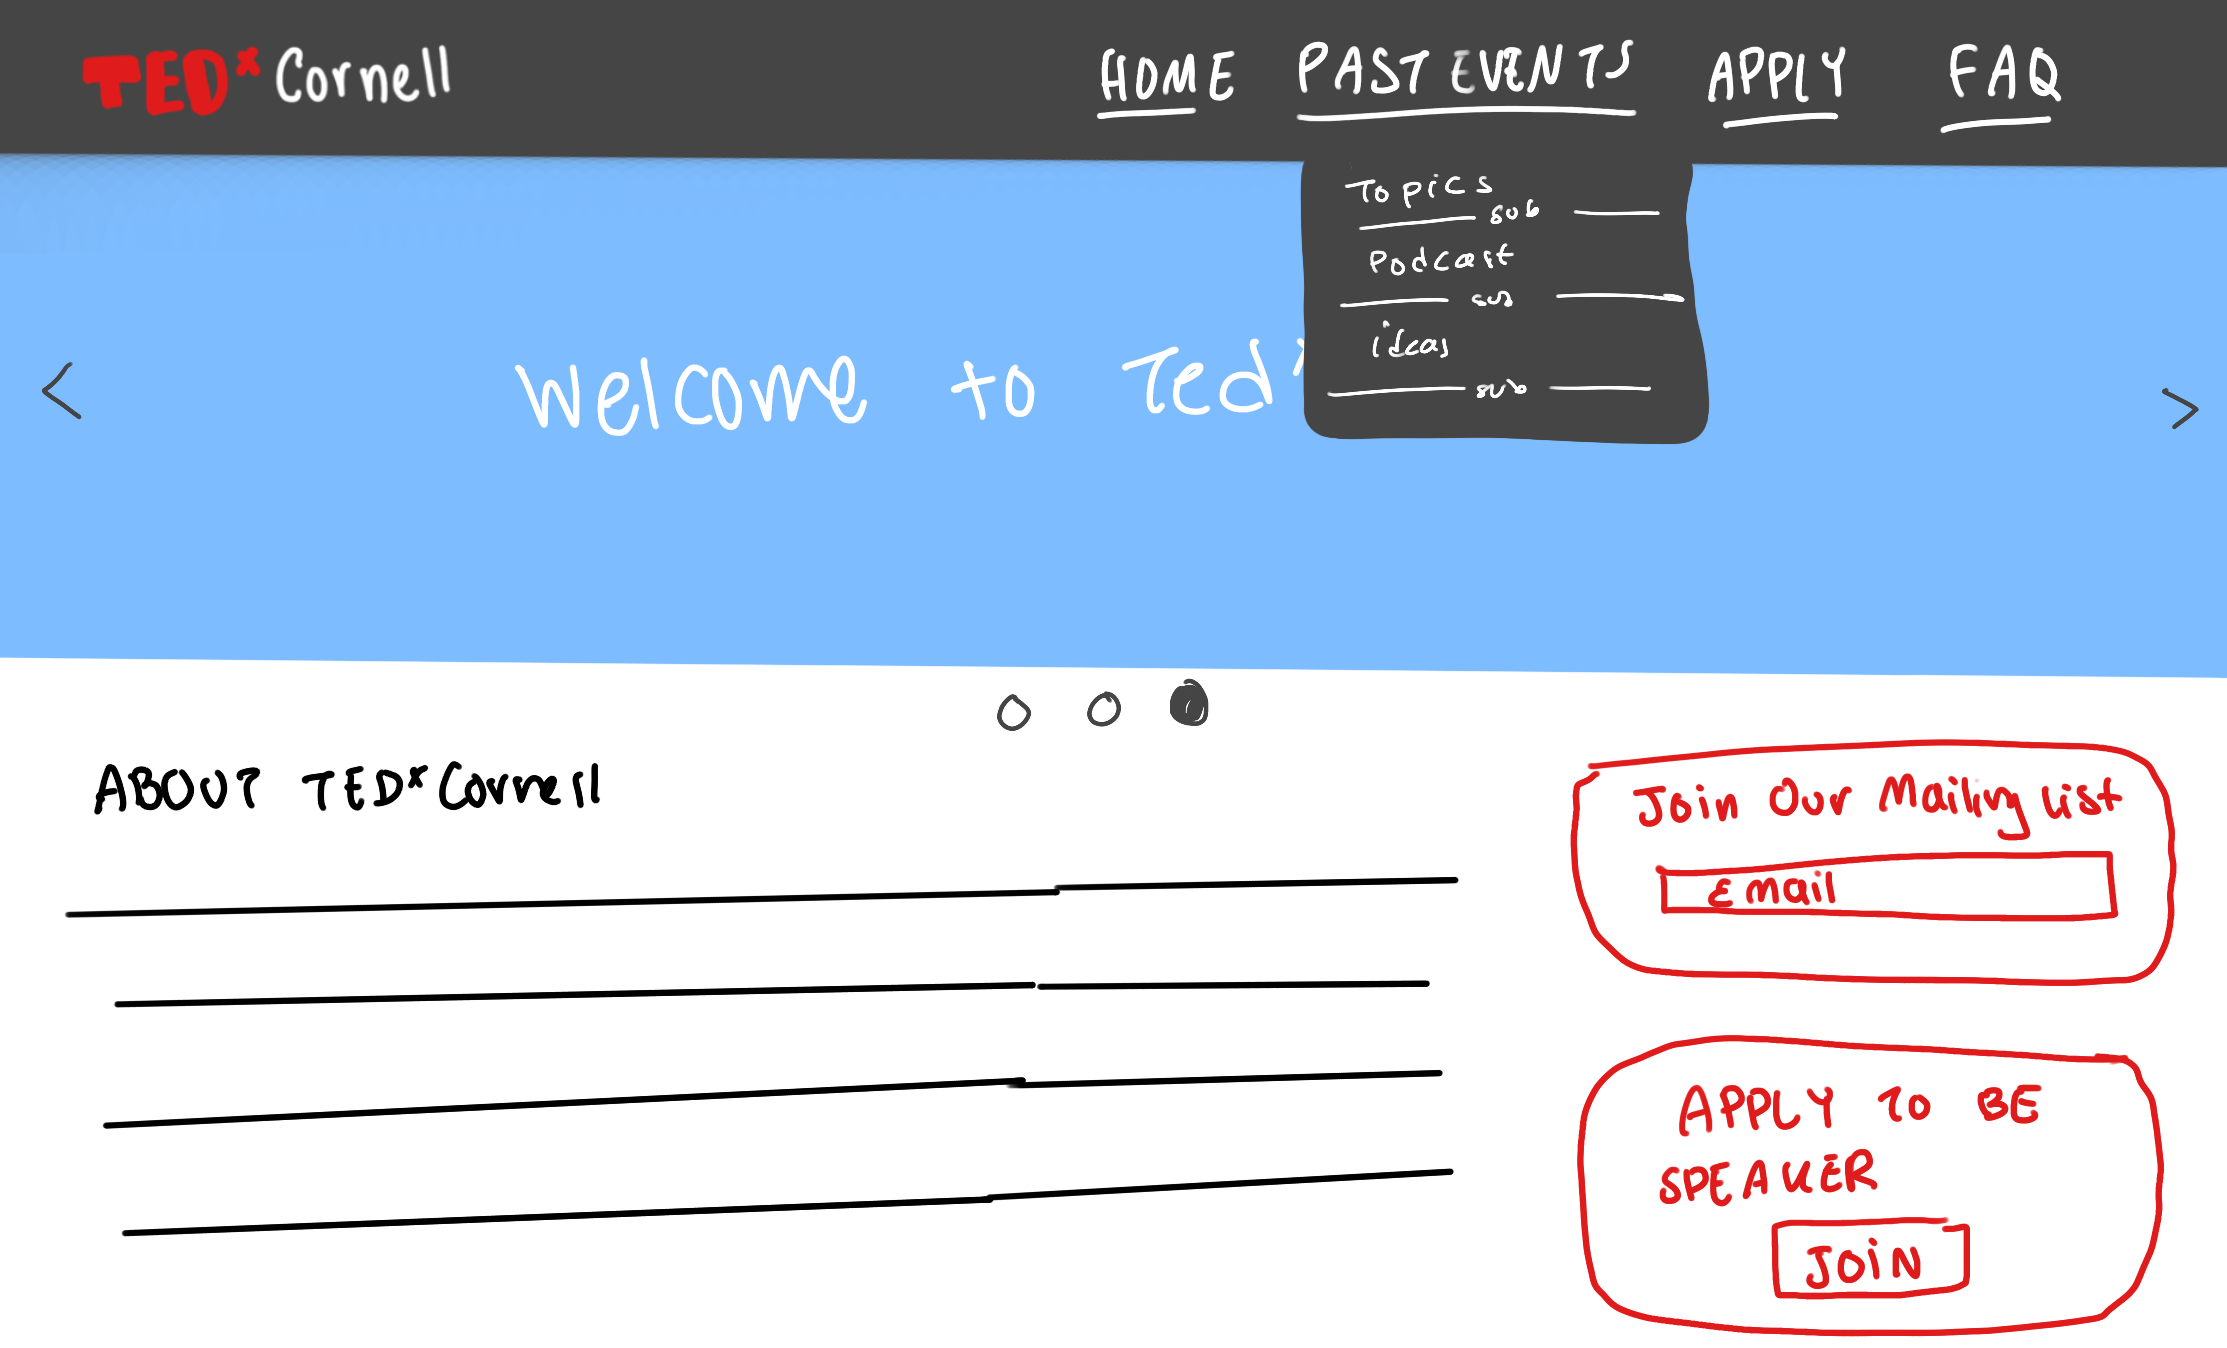 TEDx Cornell HOME PAST EVENTS APPLY FAQ
Topics
sub
Podcast
sub
ideas
sub
Welcome to Tedx
ABOUT TEDx Cornell
Join Our Mailing List
Email
APPLY TO BE
SPEAKER
JOIN